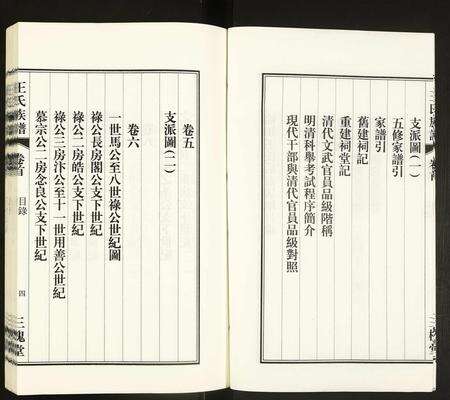 支派圖(一)
五修家譜引
家譜引
舊建祠記
重建祠堂記
清代文武官員品級階稱
明清科舉考試程序簡介
現代干部與清代官員品級對照
卷五
支派圖(二)
卷六
一世馬公至八世祿公世紀圖
祿公長房閣公支下世紀
祿公二房皓公支下世紀
祿公三房汴公至十一世用善公世紀
慕宗公二房念良公支下世紀
王氏族譜
卷首
目錄
四
三槐堂